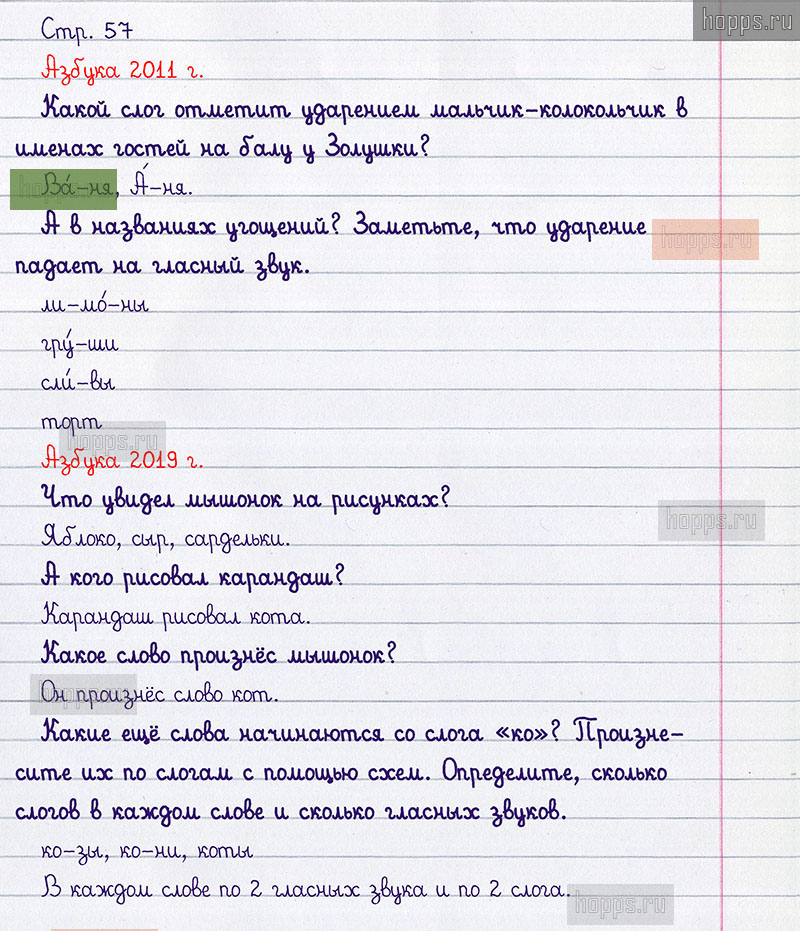 hopps.ru
Стр. 57
Азбука 2011 г.
Какой слог отметит ударением мальчик-колокольчик в
именах гостей на балу у Золушки?
Ва́-ня, А́-ня.
А в названиях угощений? Заметьте, что ударение
hopps.ru
падает на гласный звук.
ли-мо́-ны
гру́-ши
сли́-вы
торт
hopps.ru
Азбука 2019 г.
Что увидел мышонок на рисунках?
hopps.ru
Яблоко, сыр, сардельки.
А кого рисовал карандаш?
Карандаш рисовал кота.
Какое слово произнёс мышонок?
Он произнёс слово кот.
Какие ещё слова начинаются со слога «ко»? Произне-
сите их по слогам с помощью схем. Определите, сколько
слогов в каждом слове и сколько гласных звуков.
ко-зы, ко-ни, коты
В каждом слове по 2 гласных звука и по 2 слога.
hopps.ru